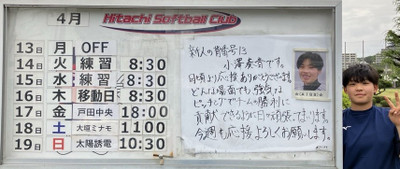 4月
Hitachi Softball Club
13日 月 OFF
14日 火 練習 8:30
15日 水 練習 8:30
16日 木 移動日 8:30
17日 金 戸田中央 18:00
18日 土 大垣ミナモ 11:00
19日 日 太陽誘電 10:30
新人の背番号13
小澤奏音です。
日頃より応援ありがとうございます。
どんな場面でも強気な
ピッチングでチームの勝利に
貢献できるように日々頑張ってまいります。
今週も応援よろしくお願いします。